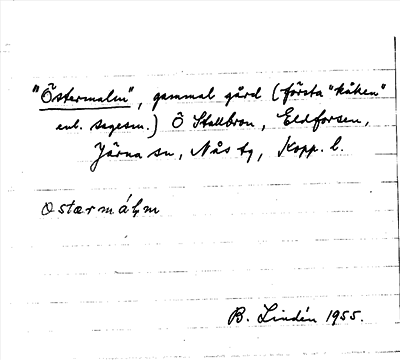 "Östermalm", gammal gård (första "kåken"
enl. sägesm.) Ö Stallbron, Eldforsen,
Järna sn, Nås tg, Kopp. l.
B. Lindén 1955.